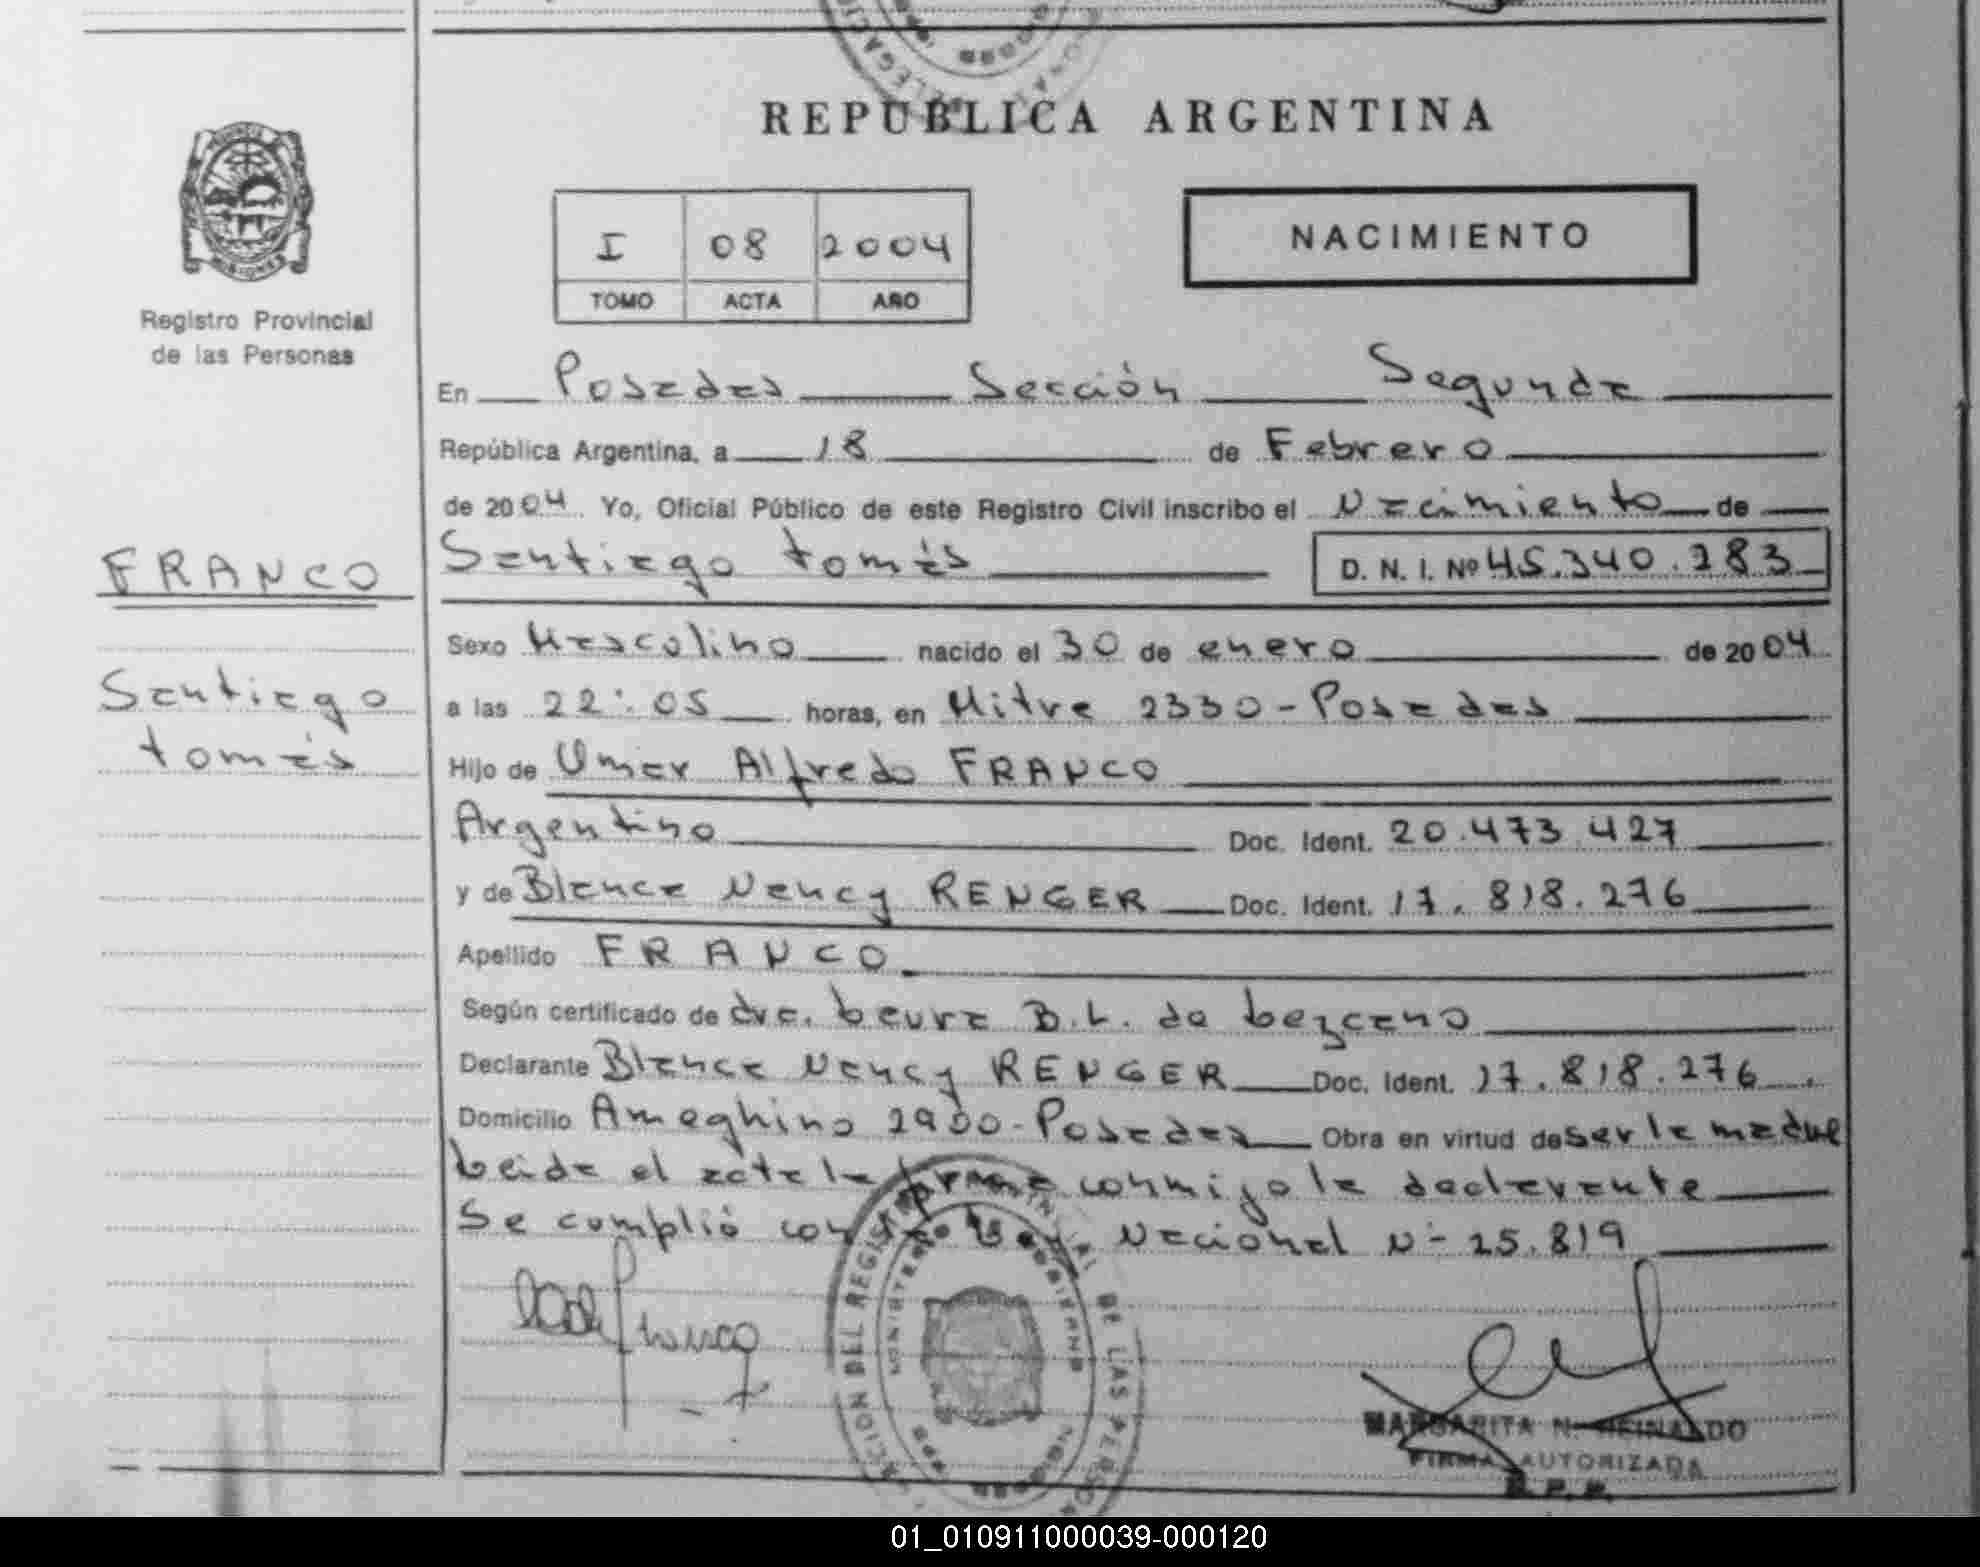 REPUBLICA ARGENTINA
NACIMIENTO
I 08 2004
TOMO ACTA AÑO
Registro Provincial
de las Personas
En Posadas Sección Segunda
República Argentina, a 18 de Febrero
de 2004 Yo, Oficial Público de este Registro Civil inscribo el Nacimiento de
FRANCO
Santiago Tomás D. N. I. Nº 45.340.283
Sexo Masculino nacido el 30 de enero de 2004
Santiago
Tomás
a las 22:05 horas, en Mitre 2330 - Posadas
Hijo de Omar Alfredo FRANCO
Argentino Doc. Ident. 20.473.427
y de Blanca Nancy RENGER Doc. Ident. 17.818.276
Apellido FRANCO
Según certificado de dra. Laura B. L. de Lezcano
Declarante Blanca Nancy RENGER Doc. Ident. 17.818.276
Domicilio Ameghino 2900 - Posadas Obra en virtud de ser la madre
Leida el acta la firma conmigo la declarante
Se cumplió con la Ley Nacional Nº 25.819
MARGARITA N. REINALDO
FIRMA AUTORIZADA
R. P. P.
01_010911000039-000120